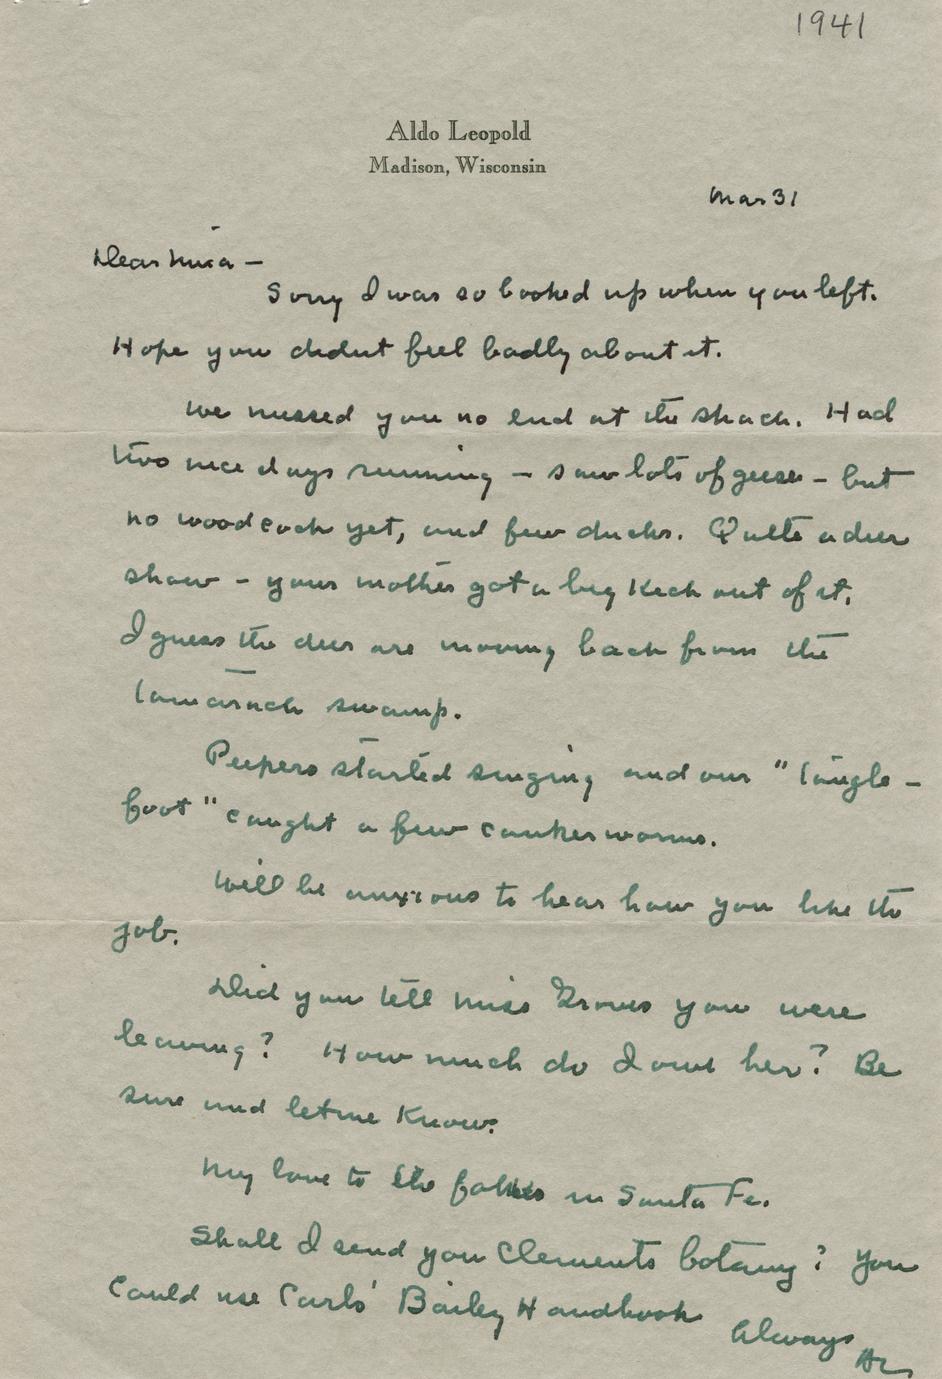 1941
Aldo Leopold
Madison, Wisconsin
Mar 31
Dear Nina -
Sorry I was so booked up when you left.
Hope you didnt feel badly about it.
We missed you no end at the shack. Had
two nice days running - saw lots of geese - but
no woodcock yet, and few ducks. Quite a deer
show - your mother got a big kick out of it.
I guess the deer are moving back from the
tamarack swamp.
Peepers started singing and our "Tangle-
foot" caught a few cankerworms.
Will be anxious to hear how you like the
job.
Did you tell Miss Groves you were
leaving? How much do I owe her? Be
sure and let me know.
My love to the folks in Santa Fe.
Shall I send you Clements botany? You
could use Carls' Bailey Handbook
Always
AL